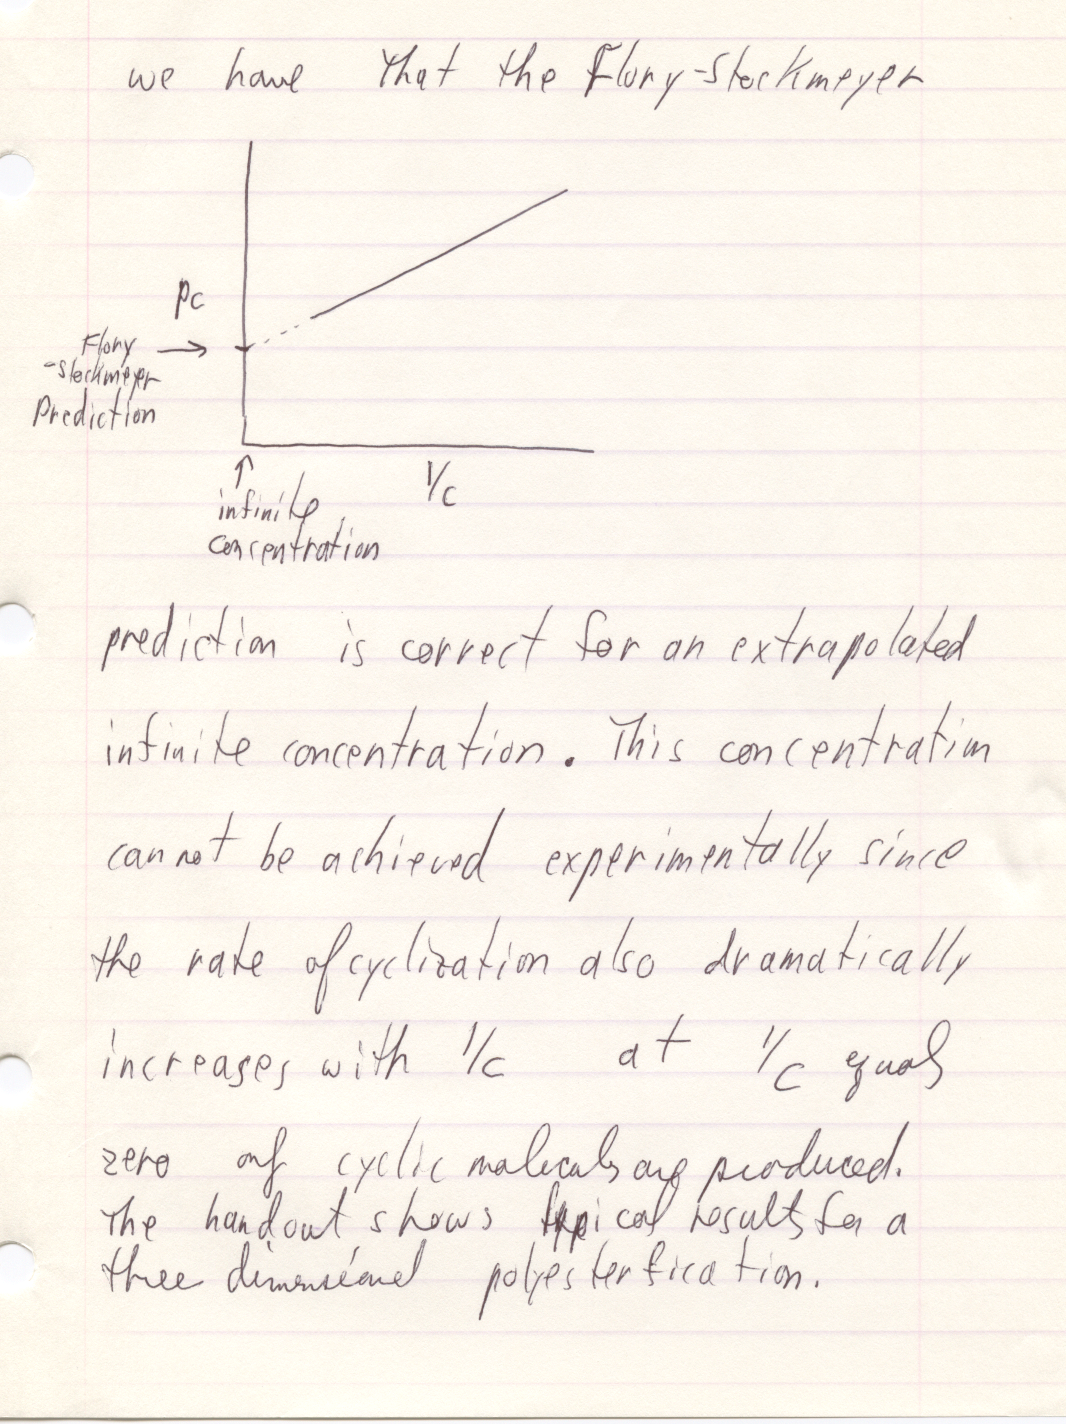 we have that the Flory-Stockmeyer
Pc
Flory
-Stockmeyer
Prediction
1/c
infinite
concentration
prediction is correct for an extrapolated
infinite concentration. This concentration
cannot be achieved experimentally since
the rate of cyclization also dramatically
increases with 1/c at 1/c equals
zero only cyclic molecules are produced.
The handout shows typical results for a
three dimensional polyesterfication.